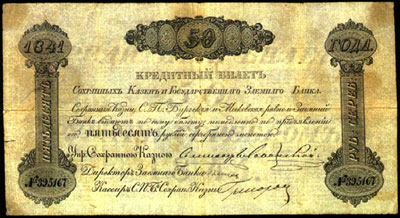 1841
50
ГОДА.
КРЕДИТНЫЙ БИЛЕТЪ
Сохранныхъ Казенъ и Государственнаго Заемнаго Банка.
Сохранныя Казны, С.П.Бургская и Московская, равно и Заемный
Банкъ выдаютъ по сему билету немедленно по предъявленіи
ПЯТЬДЕСЯТЪ рублей серебряною монетою
ПЯТЬДЕСЯТЪ
РУБ. СЕРЕБР.
Упр. Сохранною Казною
Директоръ Заемнаго Банка
Кассиръ С.П.Б. Сохран. Казны
№395167
№395167